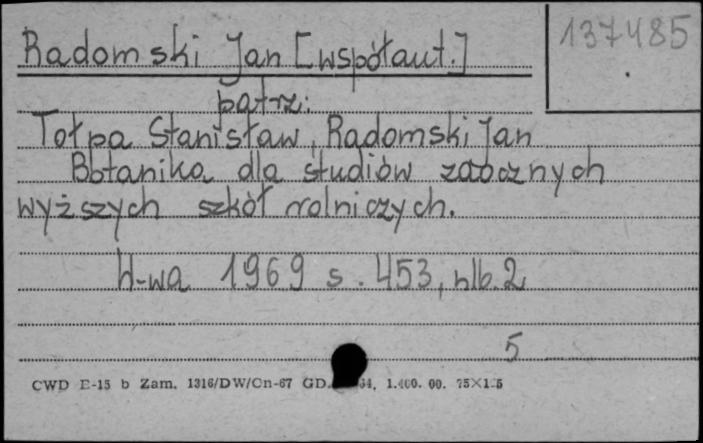 Radomski Jan [współaut.]
137485
patrz:
Tołpa Stanisław, Radomski Jan
Botanika dla studiów zaocznych
wyższych szkół rolniczych.
W-wa 1969 s. 453, nlb. 2
5
CWD E-15 b Zam. 1316/DW/Cn-67 GD. 64, 1.400. 00. 75×125